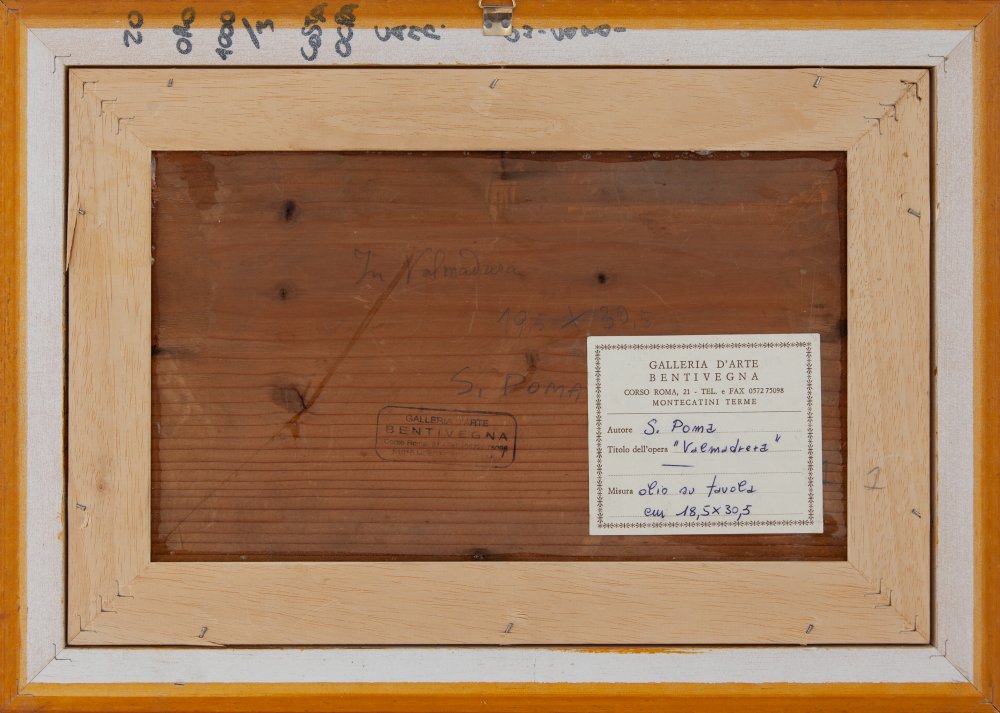 20
ORO
1000
/3
COSTA
OCRA
In Valmadrera
19,5 X 30,5
S. POMA
GALLERIA D'ARTE
BENTIVEGNA
GALLERIA D'ARTE
BENTIVEGNA
CORSO ROMA, 21 - TEL. e FAX 0572 75098
MONTECATINI TERME
Autore S. Poma
Titolo dell'opera "Valmadrera"
Misura olio su tavola
cm 18,5 X 30,5
1